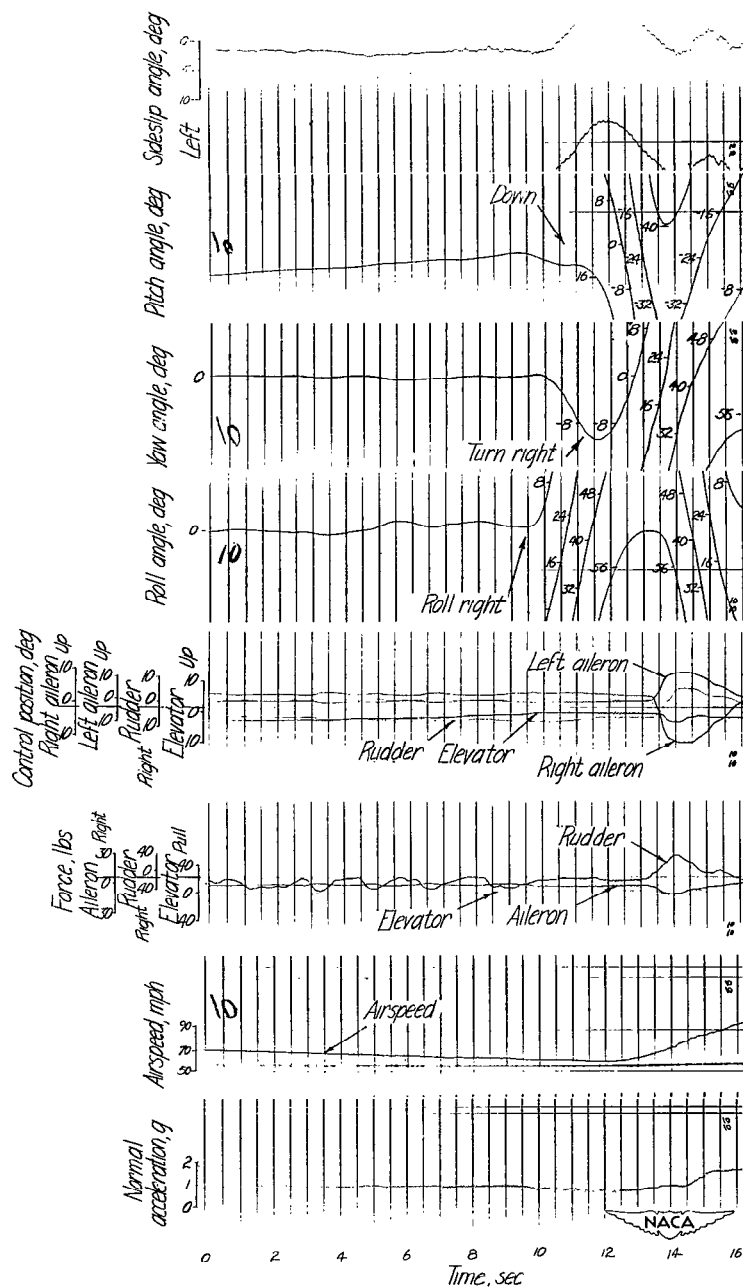 Sideslip angle, deg
Left
0
10
Pitch angle, deg
10
Down
16
8
0
-8
-16
-24
-32
-40
-32
-24
-16
-8
Yaw angle, deg
0
10
Turn right
-8
-8
0
8
16
24
32
40
48
56
Roll angle, deg
0
10
Roll right
8
16
24
32
40
48
56
56
48
40
32
24
16
8
Control position, deg
Right aileron Up
10
0
10
Left aileron Up
10
0
10
Rudder
Right
10
0
10
Elevator Up
10
0
10
Left aileron
Rudder
Elevator
Right aileron
Force, lbs
Aileron, Right
30
0
30
Rudder
Right
40
0
40
Elevator Pull
40
0
40
Rudder
Elevator
Aileron
Airspeed, mph
90
70
50
10
Airspeed
Normal
acceleration, g
2
1
0
NACA
0 2 4 6 8 10 12 14 16
Time, sec